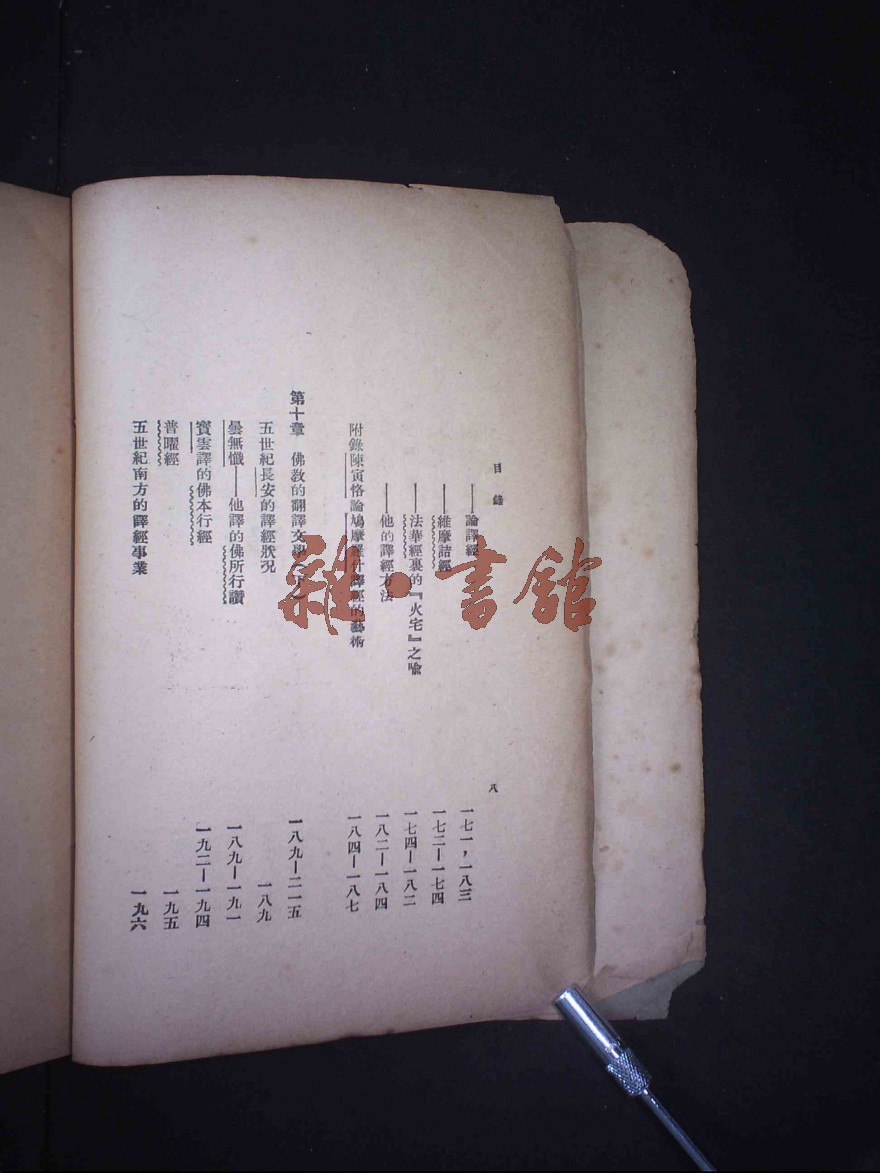 目錄 八
——論譯經 一七一，一八三
——維摩詰經 一七二—一七四
——法華經裏的『火宅』之喻 一七四—一八二
——他的譯經方法 一八二—一八四
附錄陳寅恪論鳩摩羅什譯經的藝術 一八四—一八七
第十章 佛教的翻譯文學（下） 一八九—二一五
五世紀長安的譯經狀況 一八九
曇無懺——他譯的佛所行讚 一八九—一九一
寶雲譯的佛本行經 一九二—一九四
普曜經 一九五
五世紀南方的譯經事業 一九六
雜·書館